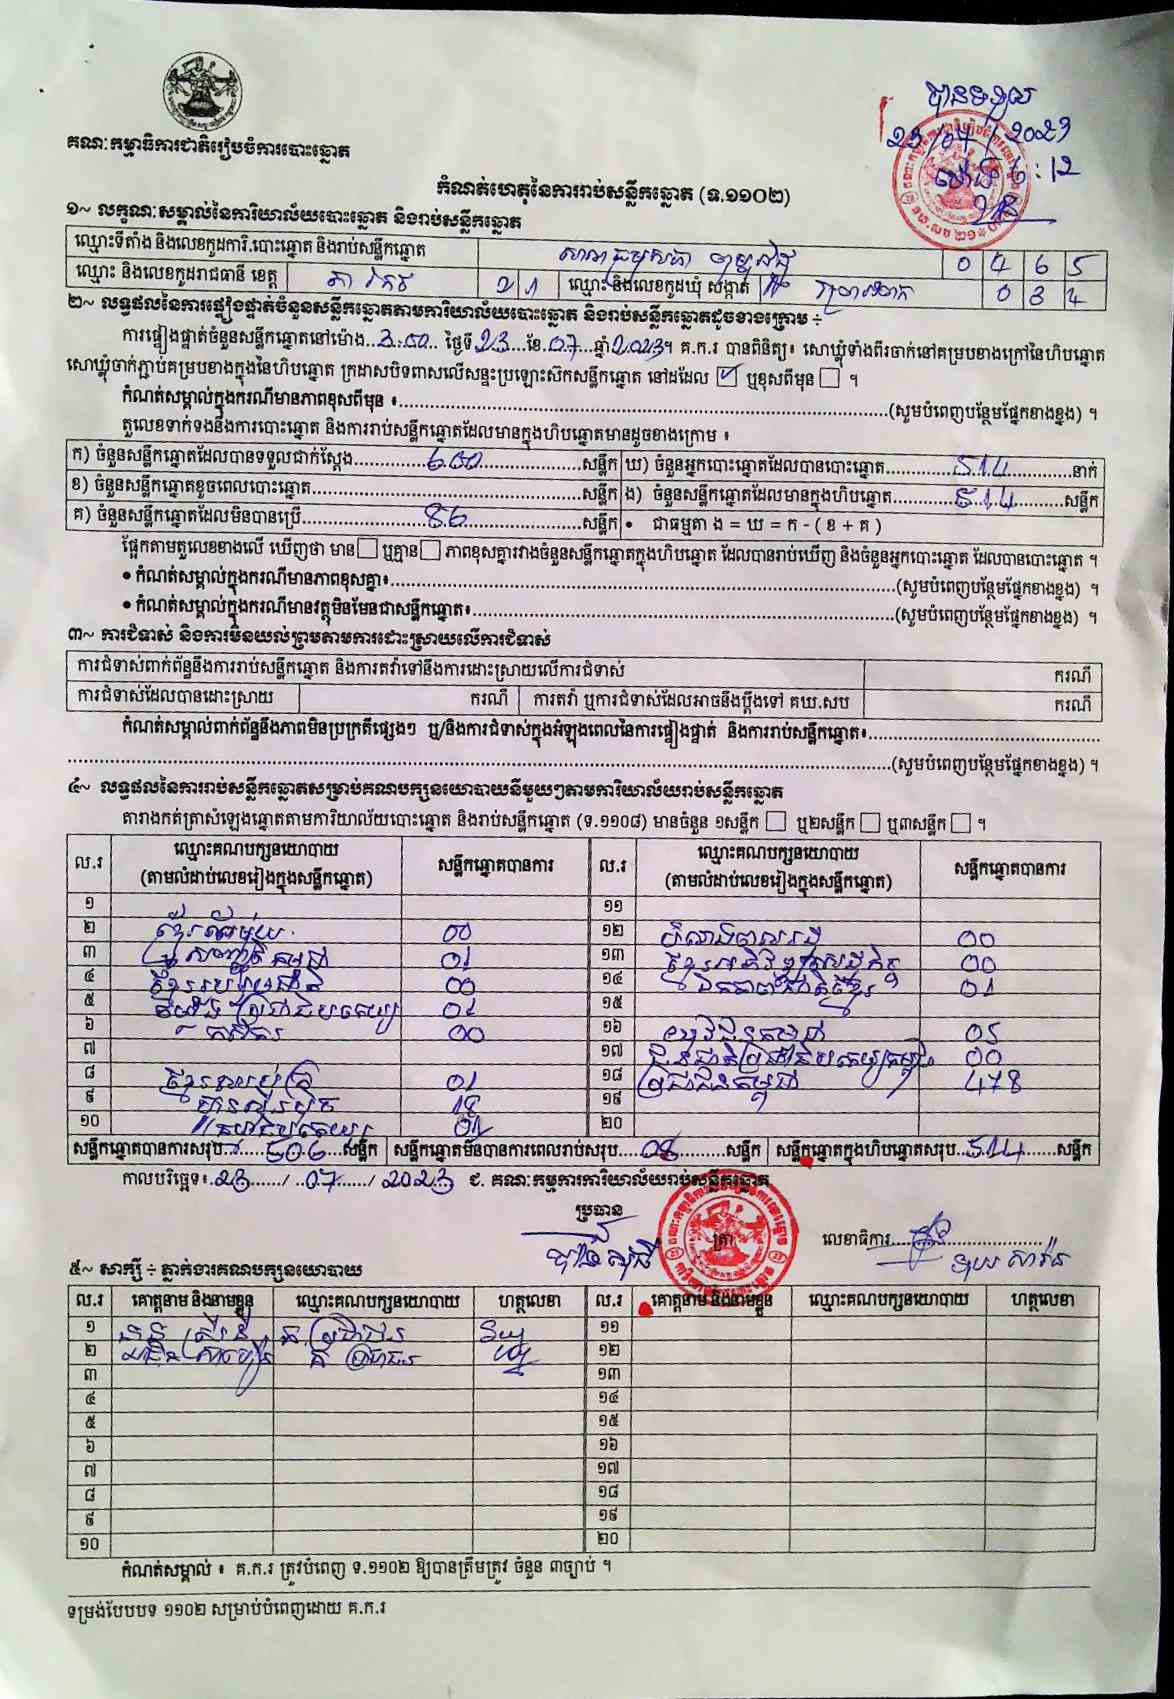 គណៈកម្មាធិការជាតិរៀបចំការបោះឆ្នោត
បានទទួល
2023
កំណត់ហេតុនៃការរាប់សន្លឹកឆ្នោត (ទ.១១០២)
១~ លក្ខណៈសម្គាល់នៃការិយាល័យបោះឆ្នោត និងរាប់សន្លឹកឆ្នោត
ឈ្មោះទីតាំង និងលេខកូដការិ.បោះឆ្នោត និងរាប់សន្លឹកឆ្នោត 0 4 6 5
ឈ្មោះ និងលេខកូដរាជធានី ខេត្ត តាកែវ 2 1 ឈ្មោះ និងលេខកូដឃុំ សង្កាត់ 0 3 4
២~ លទ្ធផលនៃការផ្ទៀងផ្ទាត់ចំនួនសន្លឹកឆ្នោតតាមការិយាល័យបោះឆ្នោត និងរាប់សន្លឹកឆ្នោតដូចខាងក្រោម ÷
ការផ្ទៀងផ្ទាត់ចំនួនសន្លឹកឆ្នោតនៅម៉ោង..3:00.. ថ្ងៃទី23...ខែ.07...ឆ្នាំ2023។ គ.ក.រ បានពិនិត្យ៖ សោឃ្លុំទាំងពីរចាក់នៅគម្របខាងក្រៅនៃហិបឆ្នោត
សោឃ្លុំចាក់ភ្ជាប់គម្របខាងក្នុងនៃហិបឆ្នោត ក្រដាសបិទពាសលើសន្ទះប្រឡោះស៊កសន្លឹកឆ្នោត នៅដដែល ☑ ឬខុសពីមុន ☐ ។
កំណត់សម្គាល់ក្នុងករណីមានភាពខុសពីមុន ៖........(សូមបំពេញបន្ថែមផ្នែកខាងខ្នង) ។
តួលេខទាក់ទងនឹងការបោះឆ្នោត និងការរាប់សន្លឹកឆ្នោតដែលមានក្នុងហិបឆ្នោតមានដូចខាងក្រោម ៖
ក) ចំនួនសន្លឹកឆ្នោតដែលបានទទួលជាក់ស្តែង........600........សន្លឹក ឃ) ចំនួនអ្នកបោះឆ្នោតដែលបានបោះឆ្នោត........514........នាក់
ខ) ចំនួនសន្លឹកឆ្នោតខូចពេលបោះឆ្នោត........សន្លឹក ង) ចំនួនសន្លឹកឆ្នោតដែលមានក្នុងហិបឆ្នោត........514........សន្លឹក
គ) ចំនួនសន្លឹកឆ្នោតដែលមិនបានប្រើ........86........សន្លឹក • ជាធម្មតា ង = ឃ = ក - ( ខ + គ )
ផ្អែកតាមតួលេខខាងលើ ឃើញថា មាន ☐ ឬគ្មាន ☐ ភាពខុសគ្នារវាងចំនួនសន្លឹកឆ្នោតក្នុងហិបឆ្នោត ដែលបានរាប់ឃើញ និងចំនួនអ្នកបោះឆ្នោត ដែលបានបោះឆ្នោត ។
• កំណត់សម្គាល់ក្នុងករណីមានភាពខុសគ្នា៖........(សូមបំពេញបន្ថែមផ្នែកខាងខ្នង) ។
• កំណត់សម្គាល់ក្នុងករណីមានវត្ថុមិនមែនជាសន្លឹកឆ្នោត៖........(សូមបំពេញបន្ថែមផ្នែកខាងខ្នង) ។
៣~ ការជំទាស់ និងការមិនយល់ព្រមតាមការដោះស្រាយលើការជំទាស់
ការជំទាស់ពាក់ព័ន្ធនឹងការរាប់សន្លឹកឆ្នោត និងការតវ៉ាទៅនឹងការដោះស្រាយលើការជំទាស់ ករណី
ការជំទាស់ដែលបានដោះស្រាយ ករណី ការតវ៉ា ឬការជំទាស់ដែលអាចនឹងប្តឹងទៅ គឃ.សប ករណី
កំណត់សម្គាល់ពាក់ព័ន្ធនឹងភាពមិនប្រក្រតីផ្សេងៗ ឬ/និងការជំទាស់ក្នុងអំឡុងពេលនៃការផ្ទៀងផ្ទាត់ និងការរាប់សន្លឹកឆ្នោត៖........
........(សូមបំពេញបន្ថែមផ្នែកខាងខ្នង) ។
៤~ លទ្ធផលនៃការរាប់សន្លឹកឆ្នោតសម្រាប់គណបក្សនយោបាយនីមួយៗតាមការិយាល័យរាប់សន្លឹកឆ្នោត
តារាងកត់ត្រាសំឡេងឆ្នោតតាមការិយាល័យបោះឆ្នោត និងរាប់សន្លឹកឆ្នោត (ទ.១១០៨) មានចំនួន ១សន្លឹក ☐ ឬ២សន្លឹក ☐ ឬ៣សន្លឹក ☐ ។
ល.រ ឈ្មោះគណបក្សនយោបាយ (តាមលំដាប់លេខរៀងក្នុងសន្លឹកឆ្នោត) សន្លឹកឆ្នោតបានការ ល.រ ឈ្មោះគណបក្សនយោបាយ (តាមលំដាប់លេខរៀងក្នុងសន្លឹកឆ្នោត) សន្លឹកឆ្នោតបានការ
១ ១១
២ ខ្មែរតែមួយ 00 ១២ 00
៣ 01 ១៣ ខ្មែរអភិវឌ្ឍន៍សេដ្ឋកិច្ច 00
៤ 00 ១៤ ឯកភាពជាតិខ្មែរ 01
៥ 01 ១៥
៦ កសិករ 00 ១៦ យុវជនកម្ពុជា 05
៧ ១៧ 00
៨ 01 ១៨ ប្រជាជនកម្ពុជា 478
៩ ១៩
១០ ២០
សន្លឹកឆ្នោតបានការសរុប......506...សន្លឹក សន្លឹកឆ្នោតមិនបានការពេលរាប់សរុប....08........សន្លឹក សន្លឹកឆ្នោតក្នុងហិបឆ្នោតសរុប..514......សន្លឹក
កាលបរិច្ឆេទ៖.23....../..07....../ 2023 ជ. គណៈកម្មការការិយាល័យរាប់សន្លឹកឆ្នោត
ប្រធាន
ត្រា លេខាធិការ........
៥~ សាក្សី ÷ ភ្នាក់ងារគណបក្សនយោបាយ
ល.រ គោត្តនាម និងនាមខ្លួន ឈ្មោះគណបក្សនយោបាយ ហត្ថលេខា ល.រ គោត្តនាម និងនាមខ្លួន ឈ្មោះគណបក្សនយោបាយ ហត្ថលេខា
១ គ ប្រជាជន ១១
២ គ ប្រជាជន ១២
៣ ១៣
៤ ១៤
៥ ១៥
៦ ១៦
៧ ១៧
៨ ១៨
៩ ១៩
១០ ២០
កំណត់សម្គាល់ ៖ គ.ក.រ ត្រូវបំពេញ ទ.១១០២ ឱ្យបានត្រឹមត្រូវ ចំនួន ៣ច្បាប់ ។
ទម្រង់បែបបទ ១១០២ សម្រាប់បំពេញដោយ គ.ក.រ